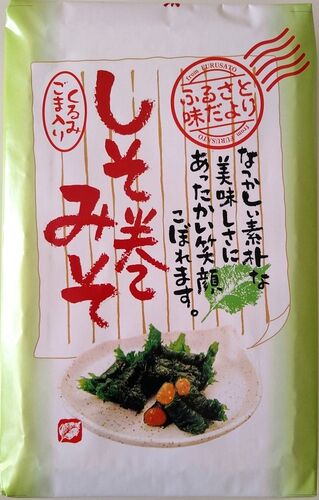 from FURUSATO
ふるさと
味だより
from FURUSATO
くるみ
ごま入り
しそ巻
みそ
なつかしい素朴な
美味しさに
あったかい笑顔
こぼれます。